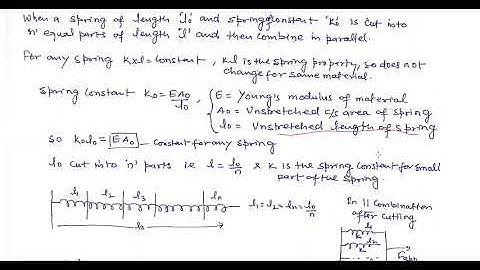 When a spring of length 'l₀' and spring constant 'K₀' is cut into
'n' equal parts of length 'l' and then combine in parallel.
For any spring K×l = constant, Kl is the spring property, so does not
change for same material.
Spring Constant K₀ = EA₀/l₀, { E = Young's modulus of material
A₀ = Unstretched c/s area of spring
l₀ = Unstretched length of spring
so K₀l₀ = EA₀ - Constant for any spring
l₀ cut into 'n' parts i.e l = l₀/n & K is the spring constant for small
part of the spring.
l₁ l₂ l₃ ln
l₁ = l₂ = ln = l₀/n
l₀
In || Combination
after Cutting
l₁
K
l₂
K